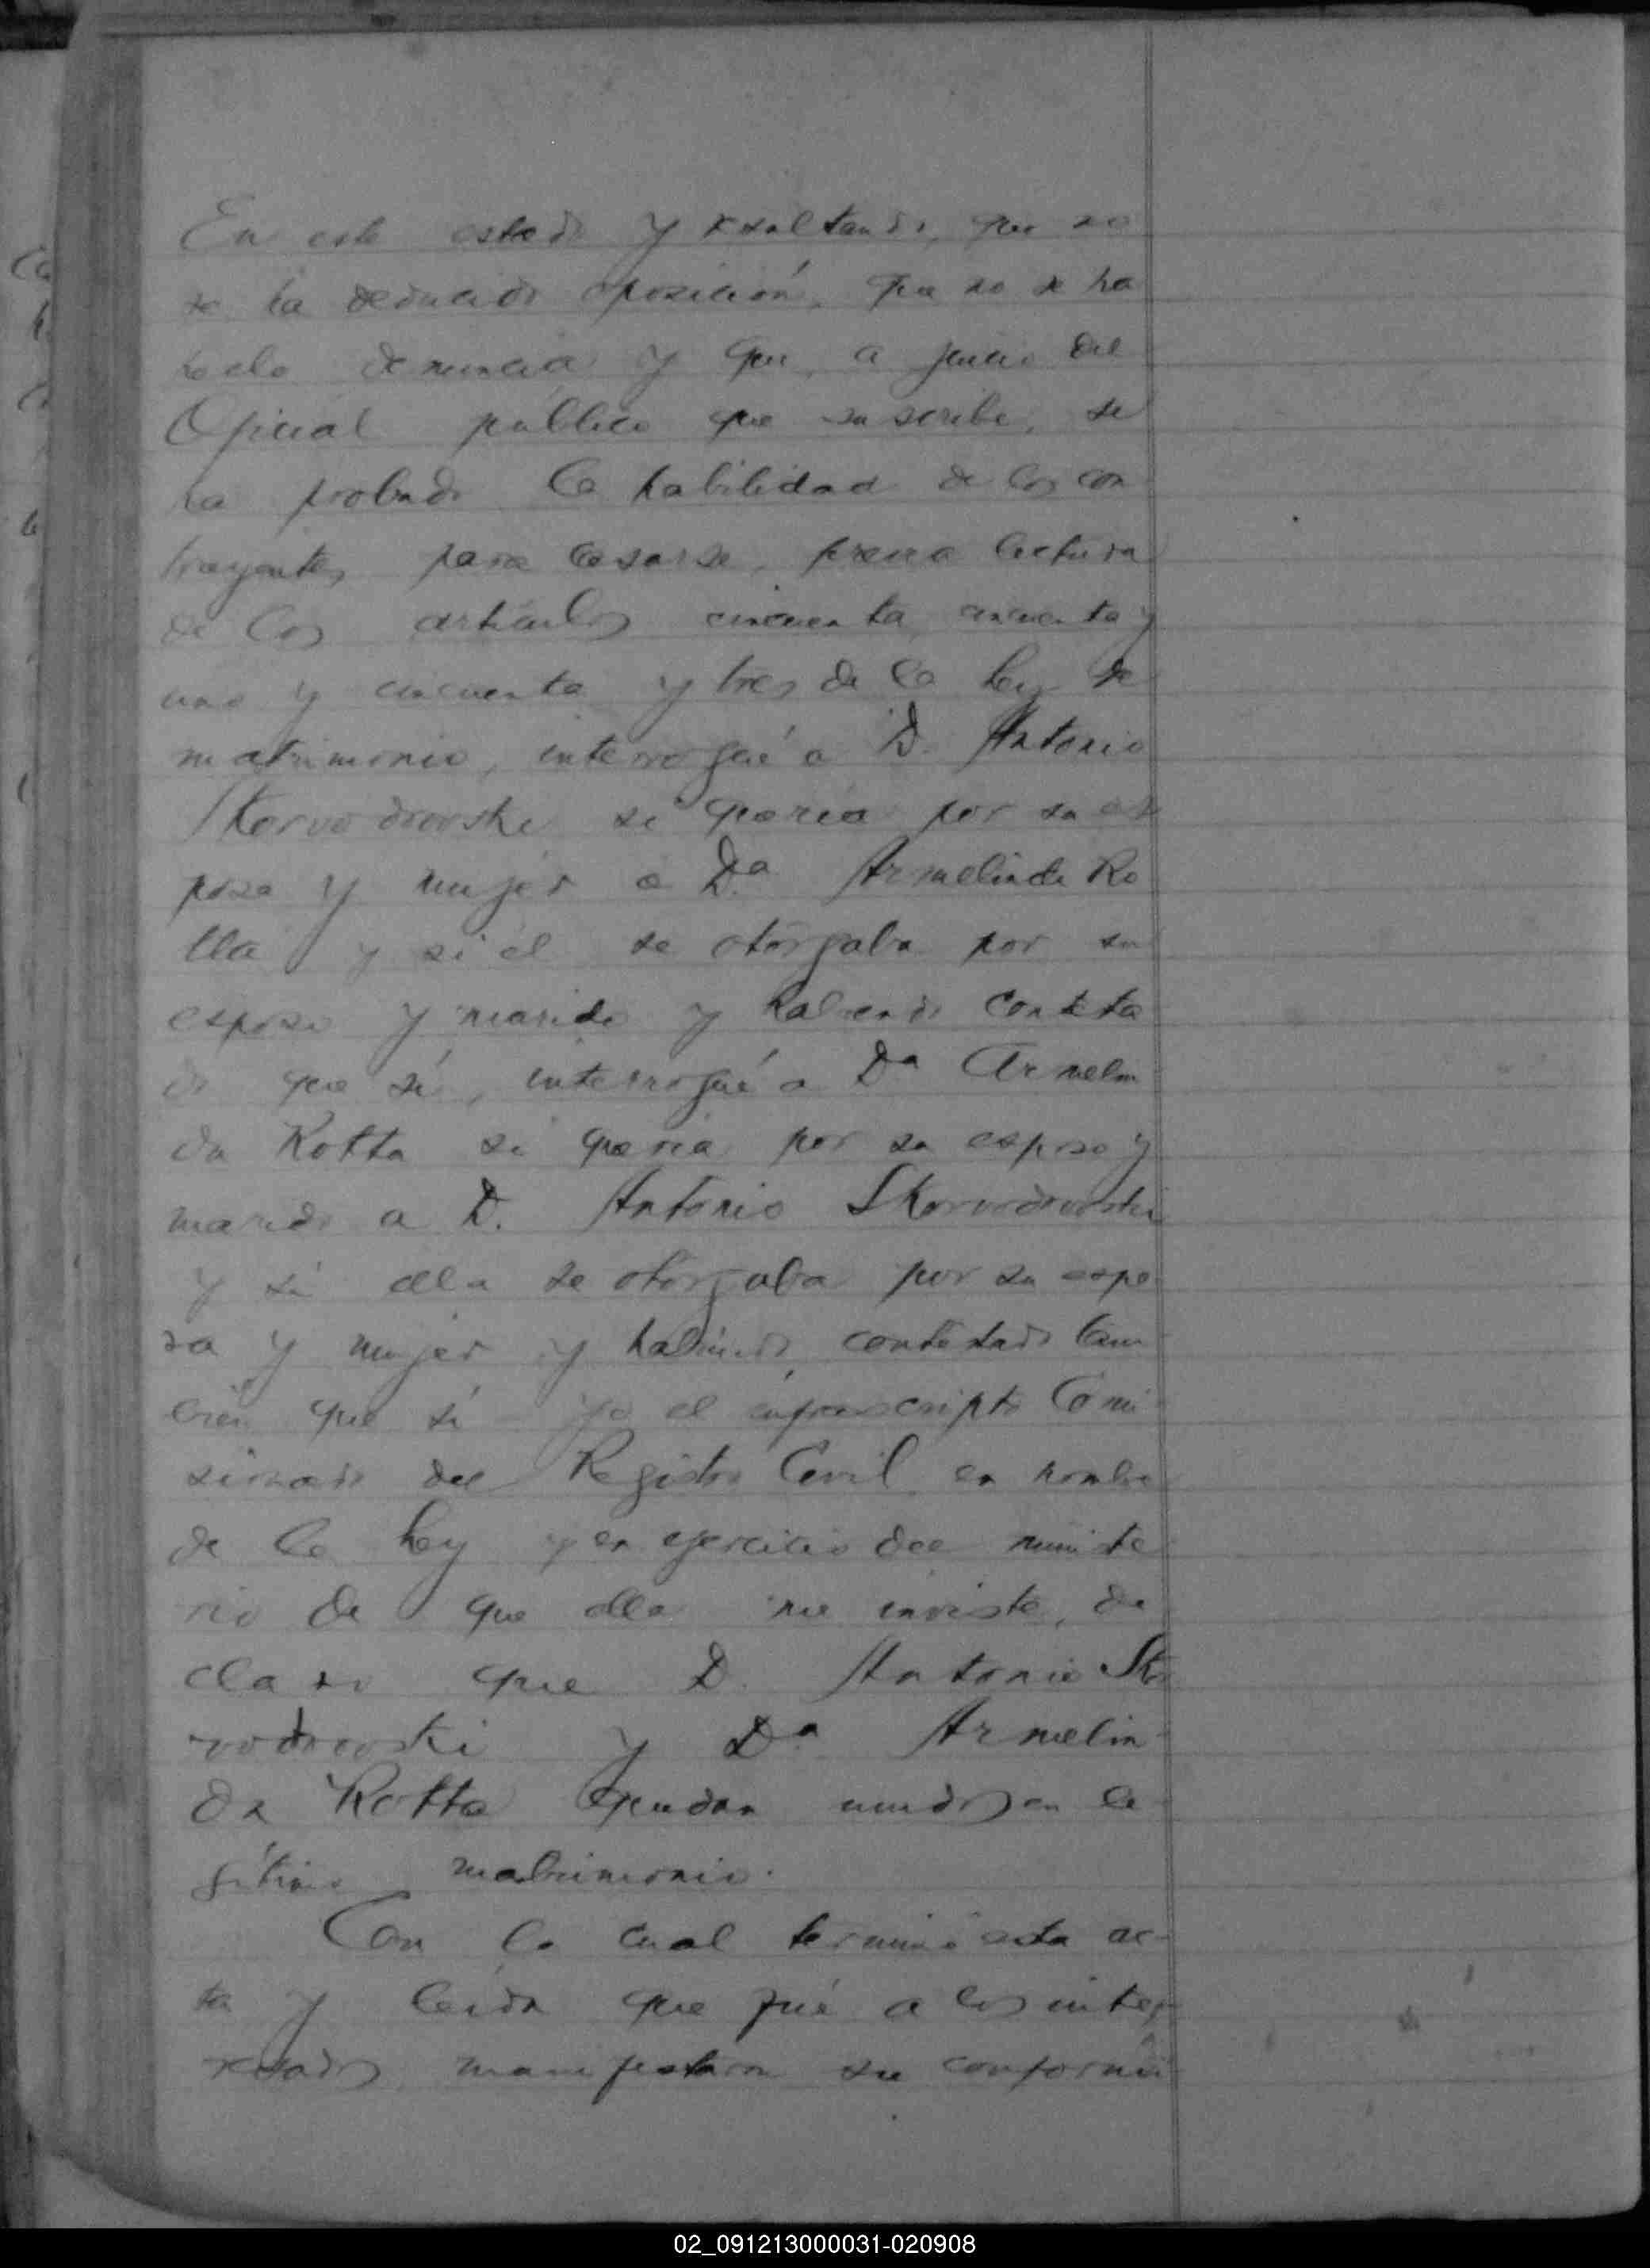 En este estado y resultando, que no
se ha deducido oposición, que no se ha
hecho denuncia y que, a juicio del
Oficial público que suscribe, se
ha probado la habilidad de los con
trayentes para casarse, previa lectura
de los artículos cincuenta, cincuenta y
uno y cincuenta y tres de la ley de
matrimonio, interrogué a D. Antonio
Skorvodrovski si quería por su es
posa y mujer a Da. Armelinda Ro
tta y si él se otorgaba por su
esposo y marido y habiendo contesta
do que sí, interrogué a Da Armelin
da Rotta si quería por su esposo y
marido a D. Antonio Skorvodrovski
y si ella se otorgaba por su espo
sa y mujer y habiendo contestado tam
bién que sí yo el infrascripto Comi
sionado del Registro Civil, en nombre
de la ley y en ejercicio del ministe
rio de que ella me inviste, de
claro que D. Antonio Sko
rvodrovski y Da. Armelin
da Rotta quedan unidos en le
gítimo matrimonio.
Con lo cual terminó esta ac-
ta y leída que fué a los inte
resados, manifestaron su conformi
02_091213000031-020908